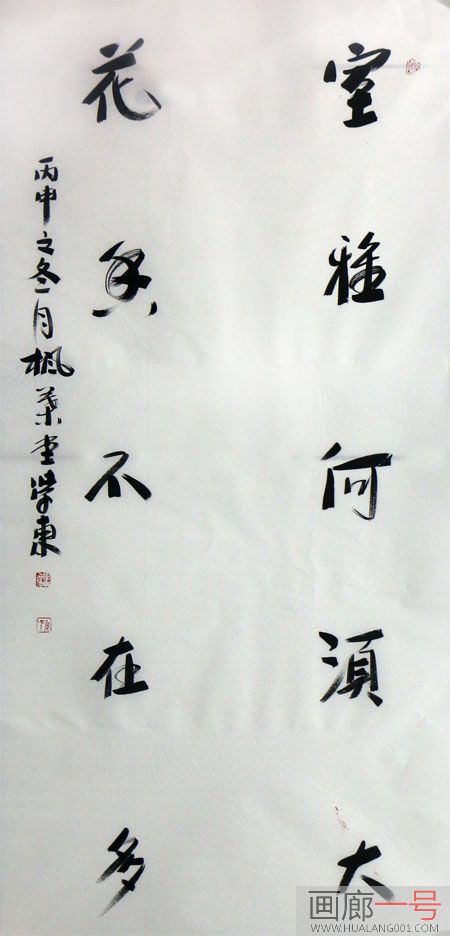 室雅何須大
花香不在多
丙申之冬月楓葉堂學東
画廊一号
WWW.HUALANG001.COM